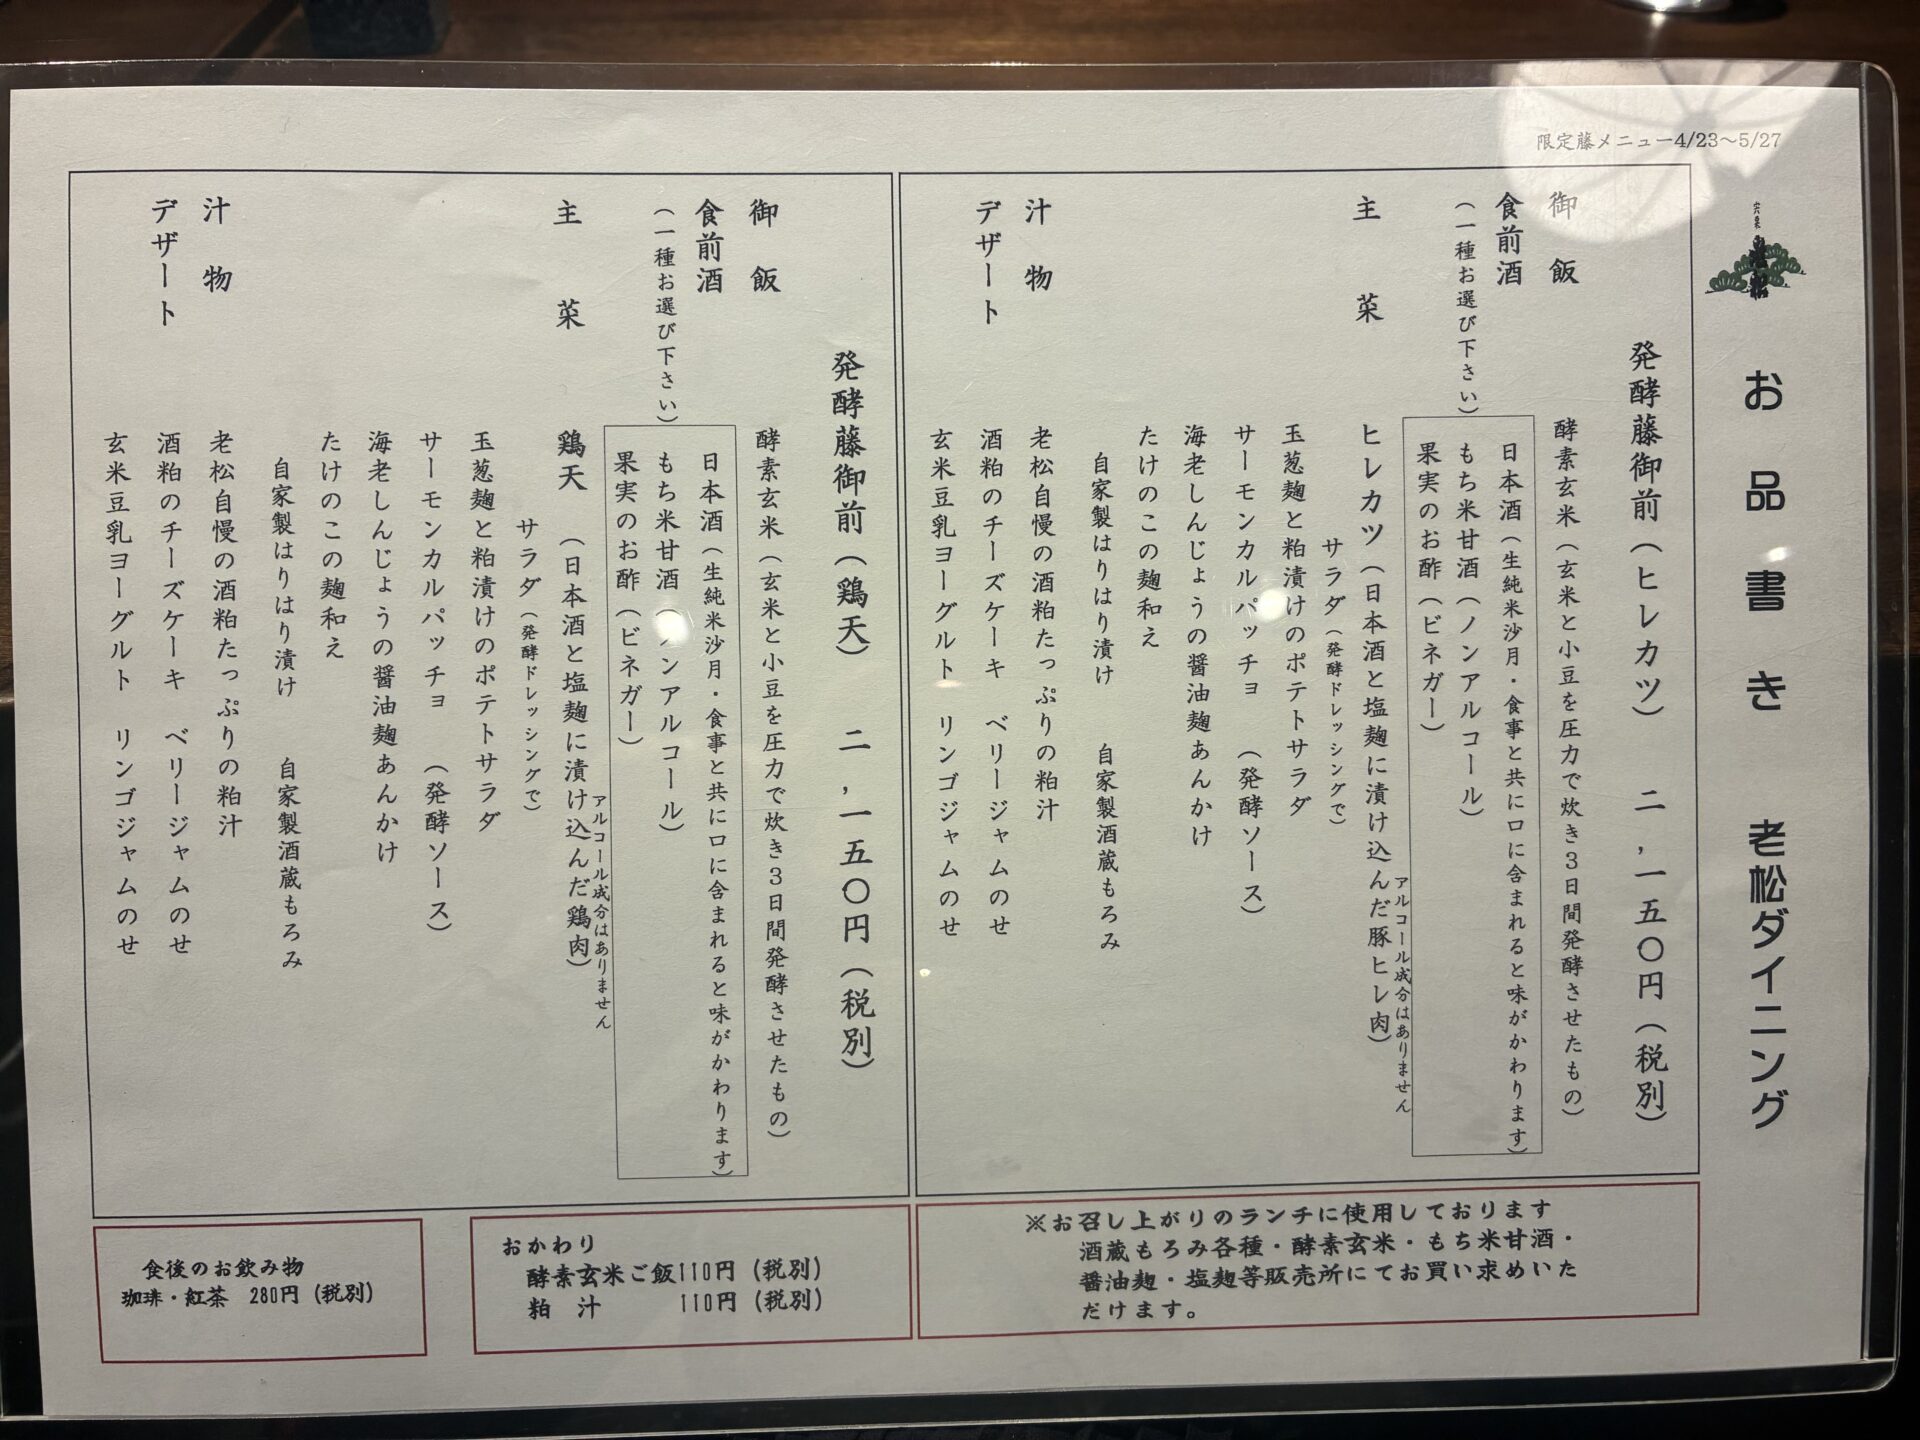 限定藤メニュー4/23～5/27
宍粟
老松
お品書き 老松ダイニング
発酵藤御前(ヒレカツ) 二,一五〇円(税別)
御飯 酵素玄米(玄米と小豆を圧力で炊き3日間発酵させたもの)
食前酒 日本酒(生純米沙月・食事と共に口に含まれると味がかわります)
(一種お選び下さい) もち米甘酒(ノンアルコール)
果実のお酢(ビネガー)
アルコール成分はありません
主菜 ヒレカツ(日本酒と塩麹に漬け込んだ豚ヒレ肉)
サラダ(発酵ドレッシングで)
玉葱麹と粕漬けのポテトサラダ
サーモンカルパッチョ (発酵ソース)
海老しんじょうの醤油麹あんかけ
たけのこの麹和え
自家製はりはり漬け 自家製酒蔵もろみ
汁物 老松自慢の酒粕たっぷりの粕汁
デザート 酒粕のチーズケーキ ベリージャムのせ
玄米豆乳ヨーグルト リンゴジャムのせ
発酵藤御前(鶏天) 二,一五〇円(税別)
御飯 酵素玄米(玄米と小豆を圧力で炊き3日間発酵させたもの)
食前酒 日本酒(生純米沙月・食事と共に口に含まれると味がかわります)
(一種お選び下さい) もち米甘酒(ノンアルコール)
果実のお酢(ビネガー)
アルコール成分はありません
主菜 鶏天 (日本酒と塩麹に漬け込んだ鶏肉)
サラダ(発酵ドレッシングで)
玉葱麹と粕漬けのポテトサラダ
サーモンカルパッチョ (発酵ソース)
海老しんじょうの醤油麹あんかけ
たけのこの麹和え
自家製はりはり漬け 自家製酒蔵もろみ
汁物 老松自慢の酒粕たっぷりの粕汁
デザート 酒粕のチーズケーキ ベリージャムのせ
玄米豆乳ヨーグルト リンゴジャムのせ
※お召し上がりのランチに使用しております
酒蔵もろみ各種・酵素玄米・もち米甘酒・
醤油麹・塩麹等販売所にてお買い求めいた
だけます。
おかわり
酵素玄米ご飯110円(税別)
粕 汁 110円(税別)
食後のお飲み物
珈琲・紅茶 280円(税別)